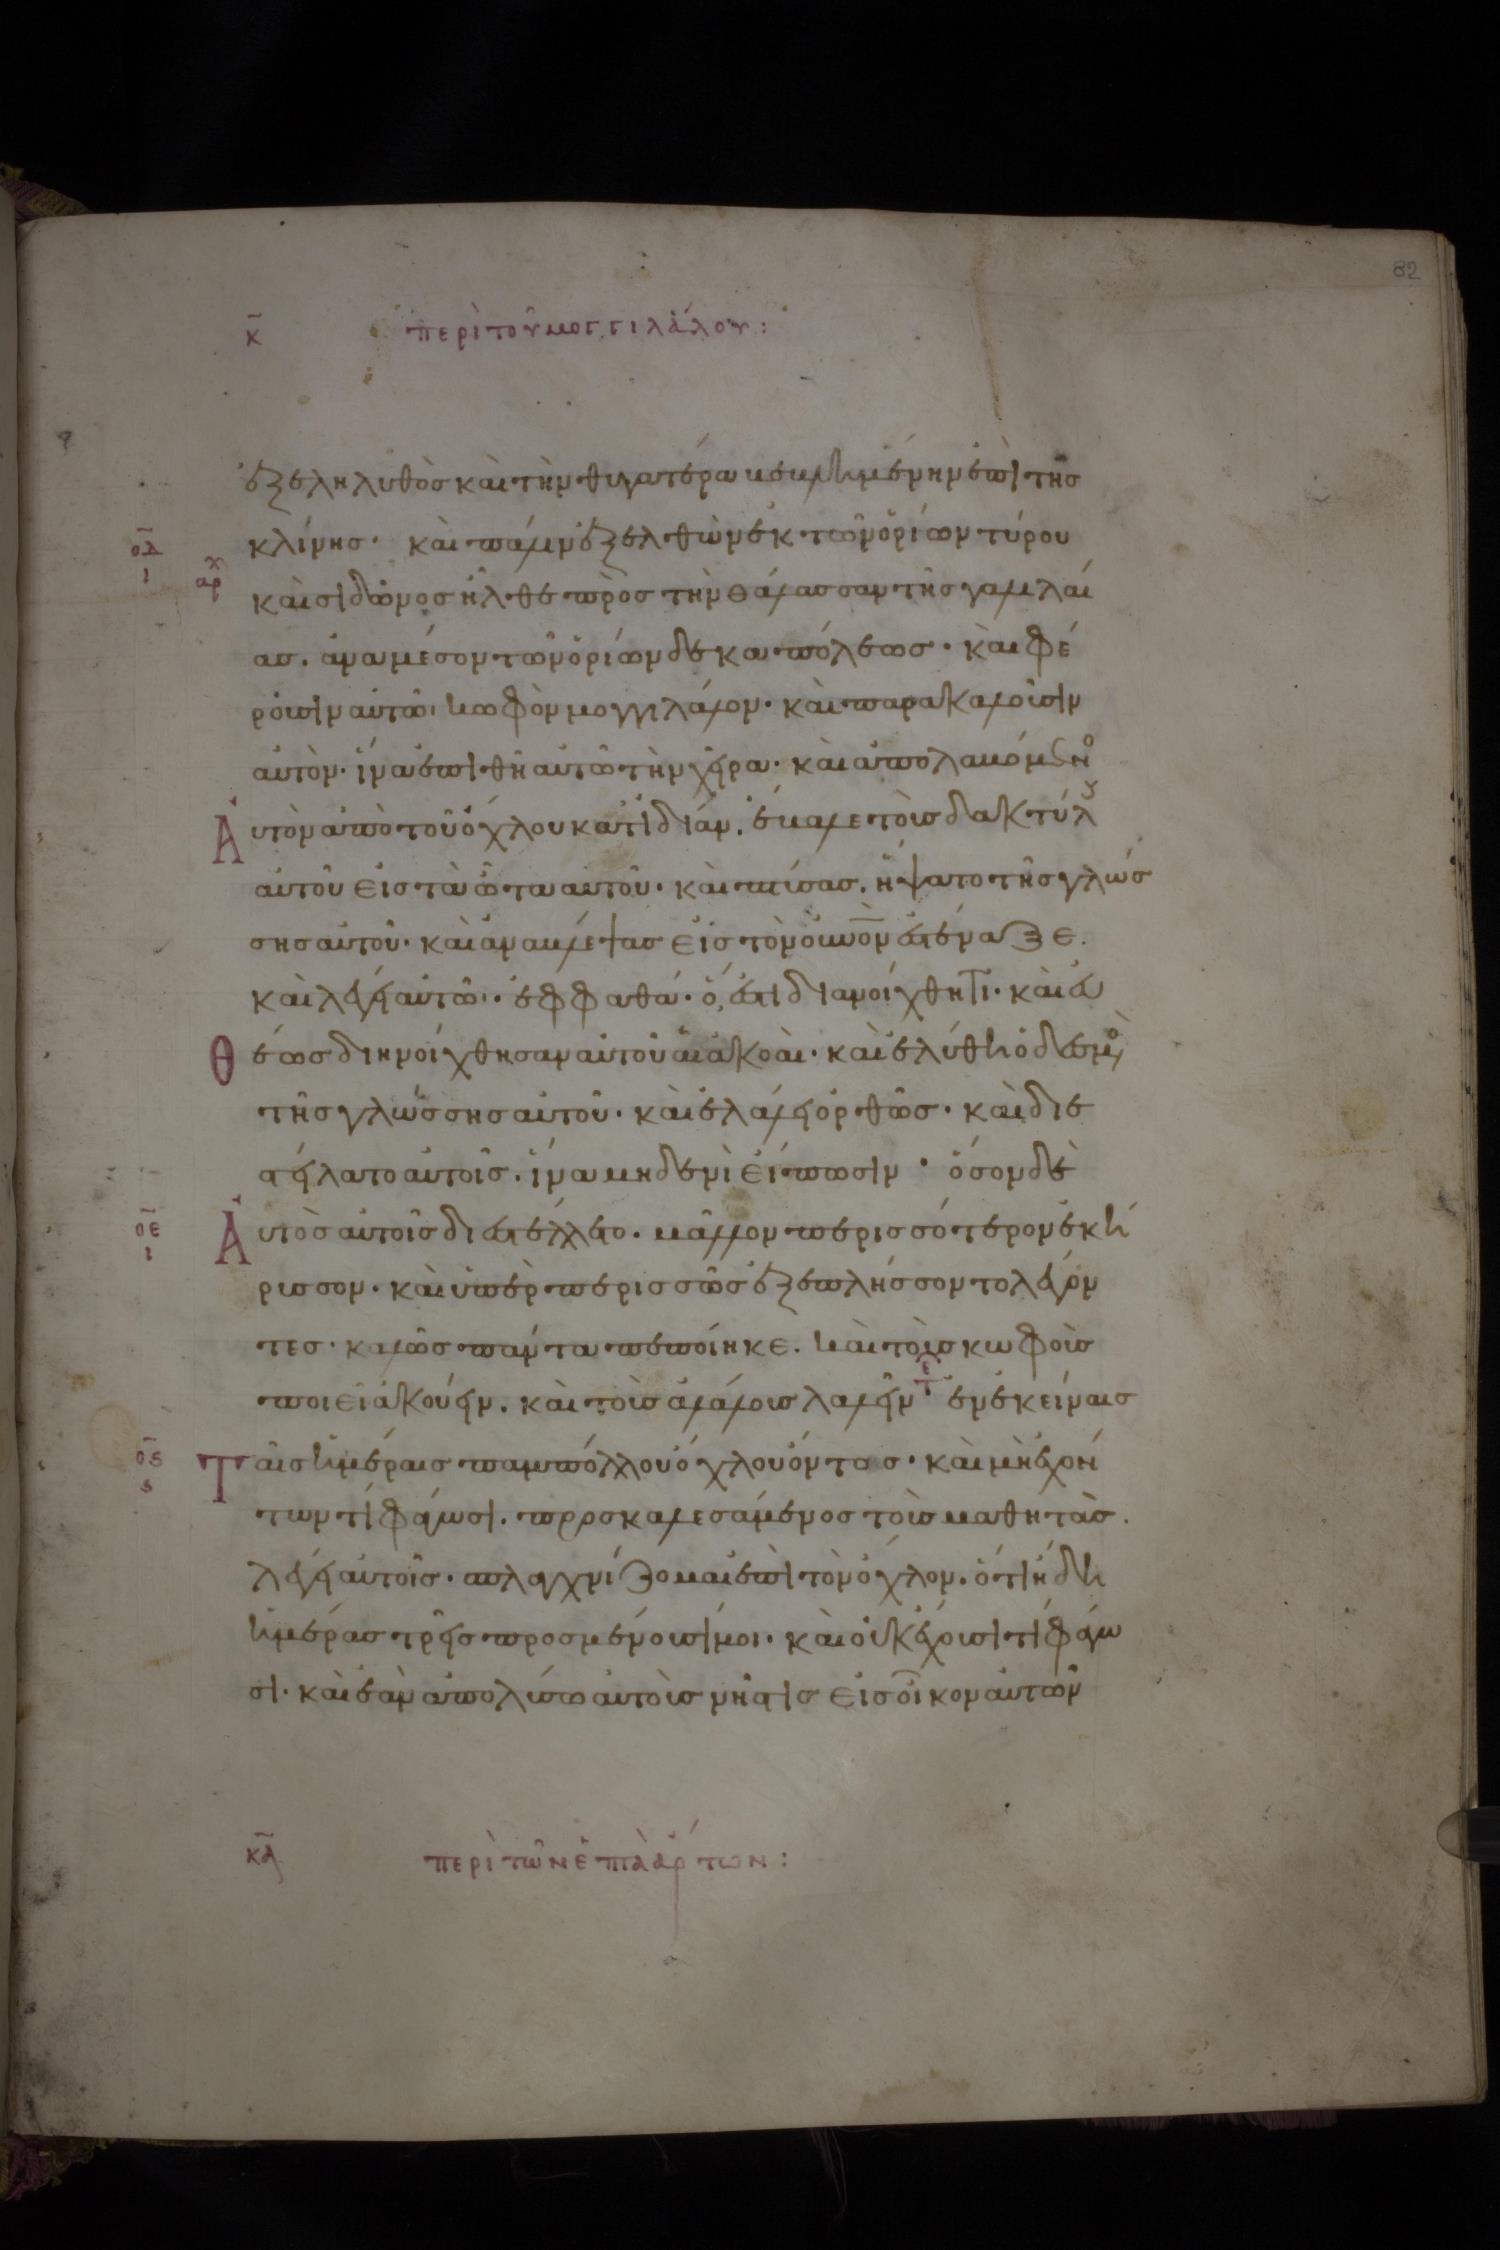 82
κ̄ περὶ τοῦ μογγιλάλου:
ἐξεληλυθὸς καὶ τὴν θυγατέρα βεβλημένην ἐπὶ τῆς
οδ κλίνης· καὶ πάλιν ἐξελθὼν ἐκ τῶν ὁρίων τύρου
ι αρχ καὶ σιδῶνος ἦλθε πρὸς τὴν θάλασσαν τῆς γαλιλαί
ας. ἀνὰ μέσον τῶν ὁρίων δεκαπόλεως· καὶ φέ
ρουσιν αὐτῶ κωφὸν μογγιλάλον· καὶ παρακαλοῦσιν
αὐτὸν· ἵνα ἐπιθῆ αὐτῶ τὴν χεῖρα· καὶ ἀπολαβόμενο
Ἀυτὸν ἀπὸ τοῦ ὄχλου κατἰδίαν. ἔβαλε τοὺς δακτύλου
αὐτοῦ εἰς τὰ ὦτα αὐτοῦ· καὶ πτύσας. ἥψατο τῆς γλώσ
σης αὐτοῦ· καὶ ἀναβλέψας εἰς τὸν οὐνον ἐστέναξε.
καὶ λέγει αὐτῶ· ἐφφαθά· ὅ ἐστι διανοίχθητι· καὶ εὐ
Θέως διηνοίχθησαν αὐτοῦ αἱ ἀκοαὶ· καὶ ἐλύθη ὁ δεσμο
τῆς γλώσσης αὐτοῦ· καὶ ἐλάλει ὀρθῶς· καὶ διε
στείλατο αὐτοῖς. ἵνα μηδενὶ εἴπωσιν· ὅσον δὲ
οε ι Ἀυτὸς αὐτοῖς διεστέλλετο. μᾶλλον περισσότερον ἐκή
ρυσσον· καὶ ὑπὲρ περισσῶς ἐξεπλήσσοντο λέγον
τες· καλῶς πάντα πεποίηκε. καὶ τοὺς κωφοὺς
ποιεῖ ἀκούειν. καὶ τοὺς ἀλάλους λαλεῖν· τε ἐν ἐκείναις
ος ς Ταῖς ἡμέραις παμπόλλου ὄχλου ὄντος· καὶ μὴ ἐχόν
των τί φάγωσι. προσκαλεσάμενος τοὺς μαθητὰς.
λέγει αὐτοῖς· σπλαγχνίζομαι ἐπὶ τὸν ὄχλον. ὅτι ἤδη
ἡμέρας τρεῖς προσμένουσί μοι· καὶ οὐκ ἔχουσι τί φάγω
σι· καὶ ἐὰν ἀπολύσω αὐτοὺς νήστις εἰς οἶκον αὐτῶν
κᾱ περὶ τῶν ἑπτὰ ἄρτων: